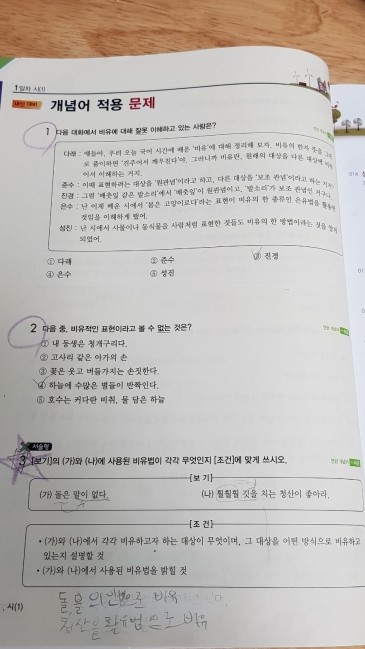 1일차 시(1)
개념어 적용 문제
1 다음 대화에서 비유에 대해 잘못 이해하고 있는 사람은?
다래 : 얘들아, 우리 오늘 국어 시간에 배운 '비유'에 대해 정리해 보자. 비유의 한자 뜻을 그대
로 풀이하면 '견주어서 깨우친다'야. 그러니까 비유란, 원래의 대상을 다른 대상에
어서 이해하는 거지.
준수 : 이때 표현하려는 대상을 '원관념'이라고 하고, 다른 대상을 '보조 관념'이라고 하는 거지?
진경 : 그럼 '배춧잎 같은 발소리'에서 '배춧잎'이 원관념이고, '발소리'가 보조 관념인 거구나.
은수 : 난 이제 배운 시에서 '봄은 고양이로다'라는 표현이 비유의 한 종류인 은유법을 활용한
것임을 이해하게 됐어.
성진 : 난 시에서 사물이나 동식물을 사람처럼 표현한 것들도 비유의 한 방법이라는 것을 알게
되었어.
① 다래 ② 준수 ③ 진경
④ 은수 ⑤ 성진
2 다음 중, 비유적인 표현이라고 볼 수 없는 것은?
① 내 동생은 청개구리다.
② 고사리 같은 아가의 손
③ 꽃은 웃고 버들가지는 손짓한다.
④ 하늘에 수많은 별들이 반짝인다.
⑤ 호수는 커다란 비취, 물 담은 하늘
서술형
3 [보기]의 (가)와 (나)에 사용된 비유법이 각각 무엇인지 [조건]에 맞게 쓰시오.
[보기]
(가) 돌은 말이 없다. (나) 훨훨훨 깃을 치는 청산이 좋아라.
[조건]
• (가)와 (나)에서 각각 비유하고자 하는 대상이 무엇이며, 그 대상을 어떤 방식으로 비유하고
있는지 설명할 것
• (가)와 (나)에서 사용된 비유법을 밝힐 것
돌을 의인법으로 비유
청산을 활유법으로 비유
시(1)